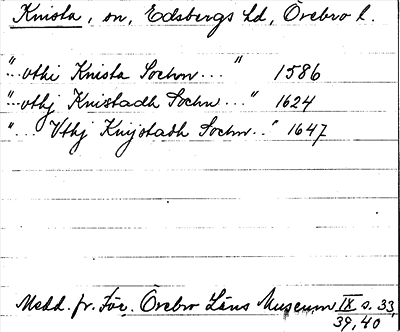 Knista, sn, Edsbergs hd, Örebro l.
"...vthi Knista Sochn..." 1586
"...vthj Knistadh Sochn..." 1624
"... Vthj Knijstadh Sochn.." 1647
Medd. fr. För. Örebro Läns Museum IX s. 33,
39, 40